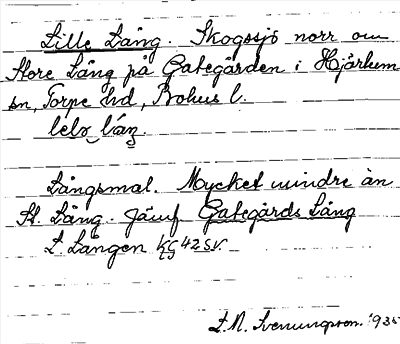 Lille Lång. Skogssjö norr om
Store Lång på Gategården i Hjärtum
sn, Torpe hd, Bohus l.
Långsmal. Mycket mindre än
St. Lång. Jämf Gategårds Lång
L Lången KG 42 SV.
1935